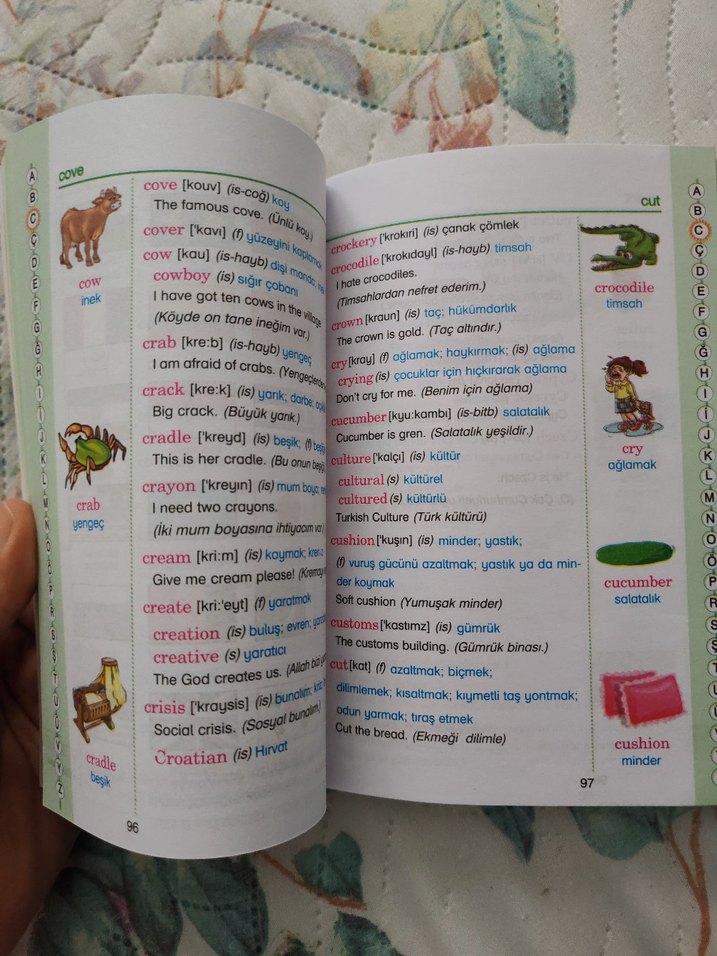 cove
A
B
C
Ç
D
E
F
G
Ğ
H
I
İ
J
K
L
M
N
O
Ö
P
R
S
Ş
T
U
Ü
V
Y
Z
cow
inek
crab
yengeç
cradle
beşik
cove [kouv] (is-coğ) koy
The famous cove. (Ünlü koy.)
cover ['kavı] (f) yüzeyini kaplamak
cow [kau] (is-hayb) dişi manda;
cowboy (is) sığır çobanı
I have got ten cows in the village
(Köyde on tane ineğim var.)
crab [kre:b] (is-hayb) yengeç
I am afraid of crabs.
crack [kre:k] (is) yarık; darbe;
Big crack. (Büyük yarık.)
cradle ['kreyd] (is) beşik; (f)
This is her cradle. (Bu onun
crayon ['kreyın] (is) mum boya;
I need two crayons.
(İki mum boyasına ihtiyacım var.)
cream [kri:m] (is) kaymak;
Give me cream please!
create [kri:'eyt] (f) yaratmak
creation (is) buluş; evren;
creative (s) yaratıcı
The God creates us. (Allah
crisis ['kraysis] (is) bunalım;
Social crisis. (Sosyal bunalım.)
Croatian (is) Hırvat
96
cut
crockery ['krokıri] (is) çanak çömlek
crocodile ['krokıdayl] (is-hayb) timsah
I hate crocodiles.
(Timsahlardan nefret ederim.)
crown [kraun] (is) taç; hükümdarlık
The crown is gold. (Taç altındır.)
cry [kray] (f) ağlamak; haykırmak; (is) ağlama
crying (is) çocuklar için hıçkırarak ağlama
Don't cry for me. (Benim için ağlama)
cucumber [kyu:kambı] (is-bitb) salatalık
Cucumber is gren. (Salatalık yeşildir.)
culture ['kalçı] (is) kültür
cultural (s) kültürel
cultured (s) kültürlü
Turkish Culture (Türk kültürü)
cushion ['kuşın] (is) minder; yastık;
(f) vuruş gücünü azaltmak; yastık ya da min-
der koymak
Soft cushion (Yumuşak minder)
customs ['kastımz] (is) gümrük
The customs building. (Gümrük binası.)
cut [kat] (f) azaltmak; biçmek;
dilimlemek; kısaltmak; kıymetli taş yontmak;
odun yarmak; tıraş etmek
Cut the bread. (Ekmeği dilimle)
97
crocodile
timsah
cry
ağlamak
cucumber
salatalık
cushion
minder
A
B
C
Ç
D
E
F
G
Ğ
H
I
İ
J
K
L
M
N
O
Ö
P
R
S
Ş
T